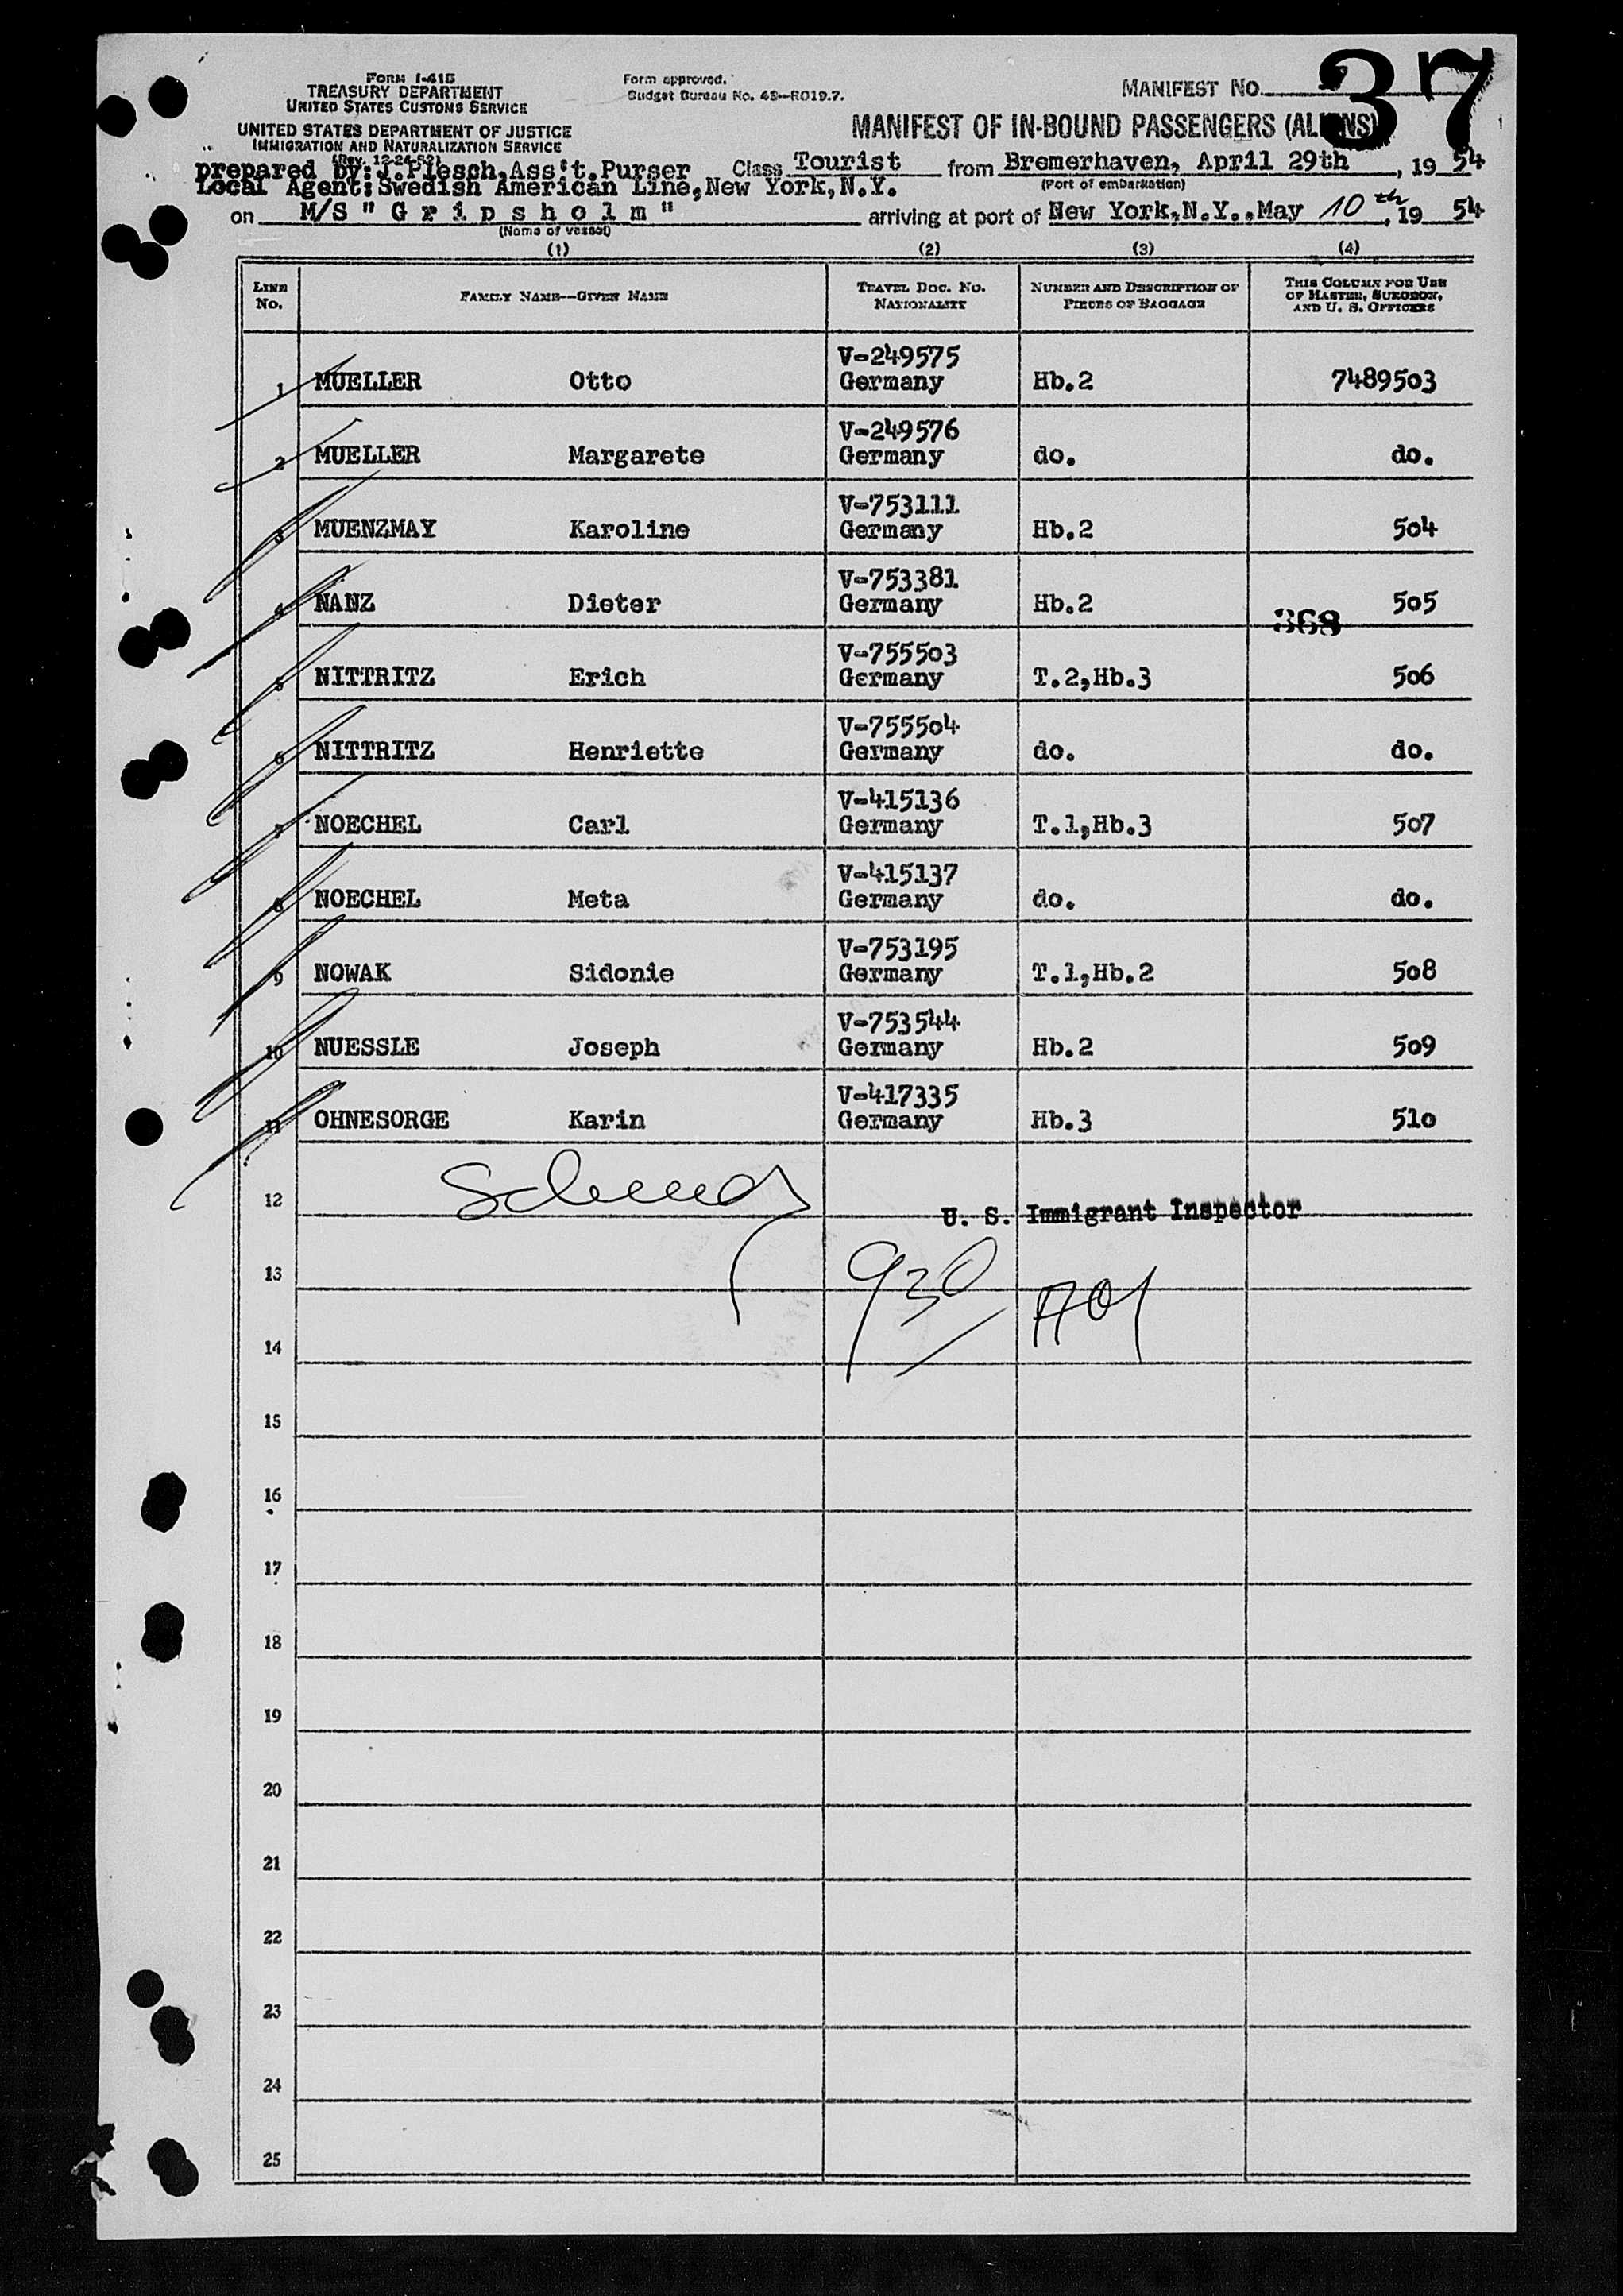 FORM I-415
TREASURY DEPARTMENT
UNITED STATES CUSTOMS SERVICE
UNITED STATES DEPARTMENT OF JUSTICE
IMMIGRATION AND NATURALIZATION SERVICE
(Rev. 12-24-52)
Form approved.
Budget Bureau No. 43-R019.7.
MANIFEST NO. 37
MANIFEST OF IN-BOUND PASSENGERS (ALIENS)
prepared by: J. Plesch, Ass't. Purser Class Tourist from Bremerhaven, April 29th, 19 54
Local Agent: Swedish American Line, New York, N.Y. (Port of embarkation)
on M/S " G r i p s h o l m " arriving at port of New York, N.Y., May 10th, 19 54
(Name of vessel)
(1) (2) (3) (4)
LINE No. FAMILY NAME—GIVEN NAME TRAVEL DOC. NO. NATIONALITY NUMBER AND DESCRIPTION OF PIECES OF BAGGAGE THIS COLUMN FOR USE OF MASTER, SURGEON, AND U. S. OFFICERS
V-249575
1 MUELLER Otto Germany Hb.2 7489503
V-249576
2 MUELLER Margarete Germany do. do.
V-753111
3 MUENZMAY Karoline Germany Hb.2 504
V-753381
4 NANZ Dieter Germany Hb.2 505
368
V-755503
5 NITTRITZ Erich Germany T.2,Hb.3 506
V-755504
6 NITTRITZ Henriette Germany do. do.
V-415136
7 NOECHEL Carl Germany T.1,Hb.3 507
V-415137
8 NOECHEL Meta Germany do. do.
V-753195
9 NOWAK Sidonie Germany T.1,Hb.2 508
V-753544
10 NUESSLE Joseph Germany Hb.2 509
V-417335
11 OHNESORGE Karin Germany Hb.3 510
12
U. S. Immigrant Inspector
13 930
14
15
16
17
18
19
20
21
22
23
24
25